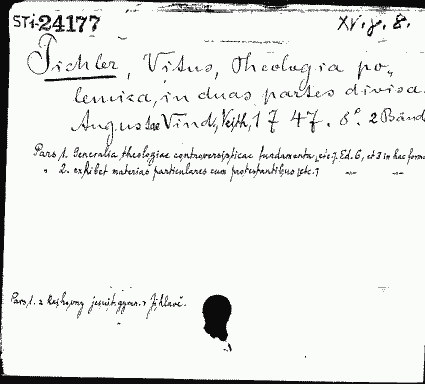 STi-24177 XV. g. 8.
Pichler, Vitus, Theologia po-
lemica, in duas partes divisa.
Augustae Vind., Veith, 1747. 8°. 2 Bände
Pars 1. Generalia theologiae controversisticae fundamenta [etc.] Ed. 6, et 3 in hac forma
" 2. exhibet materias particulares cum protestantibus [etc.] " "
Pars 1. z knihovny jesuit. gymn. v Jihlavě.
"